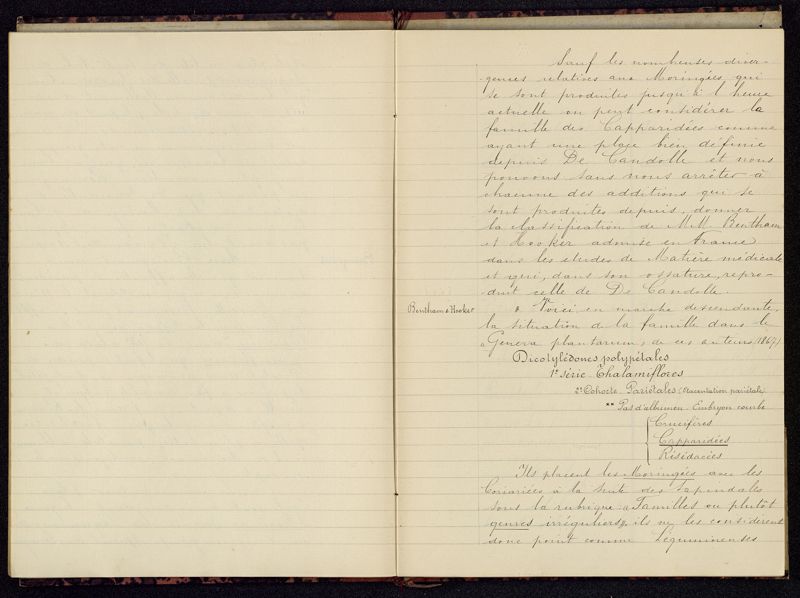 Sauf les nombreuses diver-
gences relatives aux Moringées, qui
se sont produites jusqu'à l'heure
actuelle on peut considérer la
famille des Capparidées comme
ayant une place bien définie
depuis De Candolle et nous
pouvons sans nous arrêter à
chacune des additions qui se
sont produites depuis, donner
la classification de MM. Bentham
et Hooker admise en France
dans les études de Matière médicale
et qui, dans son ossature, repro-
duit celle de De Candolle.
Bentham & Hooker
Voici en marche descendante,
la situation de la famille dans le
« Genera plantarum » de ces auteurs (1867)
Dicotylédones polypétales
1e série Thalamiflores
2e Cohorte Pariétales (Placentation pariétale)
** Pas d'albumen. Embryon courbe
Crucifères
Capparidées
Résédacées
Ils placent les Moringées avec les
Coriariées à la suite des Sapindales
sous la rubrique « Familles ou plutôt
genres irréguliers », ils ne les considèrent
donc point comme Légumineuses